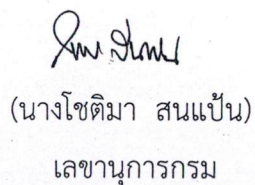 (นางโชติมา สนแป้น)
เลขานุการกรม